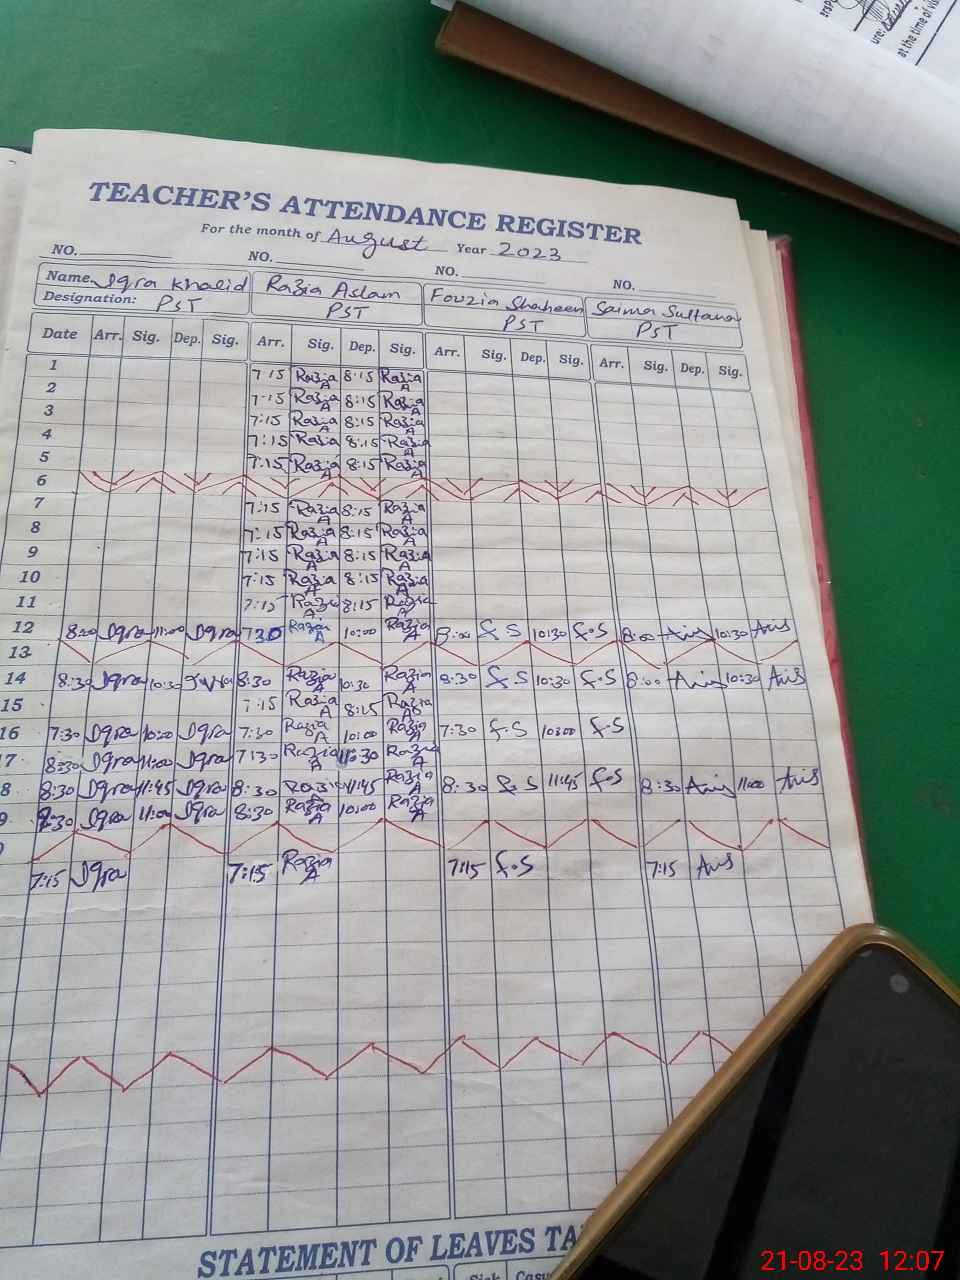 ure:
at the time of vis
TEACHER'S ATTENDANCE REGISTER
For the month of August Year 2023
NO. NO. NO. NO.
Name Iqra Khalid Razia Aslam Fouzia Shaheen Saima Sultana
Designation: PST PST PST PST
Date Arr. Sig. Dep. Sig. Arr. Sig. Dep. Sig. Arr. Sig. Dep. Sig. Arr. Sig. Dep. Sig.
1 7:15 Razia A 8:15 Razia A
2 7:15 Razia A 8:15 Razia A
3 7:15 Razia A 8:15 Razia A
4 7:15 Razia 8:15 Razia A
5 7:15 Razia 8:15 Razia
6
7 7:15 Razia A 8:15 Razia A
8 7:15 Razia A 8:15 Razia A
9 7:15 Razia A 8:15 Razia A
10 7:15 Razia A 8:15 Razia A
11 7:15 Razia A 8:15 Razia A
12 Iqra 11:00 Iqra 730 Razia A 10:00 Razia A 8:00 f.S 10:30 f.S 8:00 Anis 10:30 Anis
13
14 8:30 Iqra 10:30 Iqra 8:30 Razia A 10:30 Razia A 8:30 f.S 10:30 f.S 8:00 Anis 10:30 Anis
15 7:15 Razia A 8:15 Razia
16 7:30 Iqra 10:00 Iqra 7:30 Razia A 10:00 Razia A 7:30 f.S 10:00 f.S
7 8:30 Iqra 11:00 Iqra 7:30 Razia A Razia A
8 8:30 Iqra 11:45 Iqra 8:30 Razia A 11:45 Razia A 8:30 f.S 11:45 f.S 8:30 Anis 11:00 Anis
9 Iqra 11:00 Iqra 8:30 Razia A 10:00 Razia A
7:15 Iqra 7:15 Razia A 7:15 f.S 7:15 Anis
STATEMENT OF LEAVES TA
Sick Casu
21-08-23 12:07